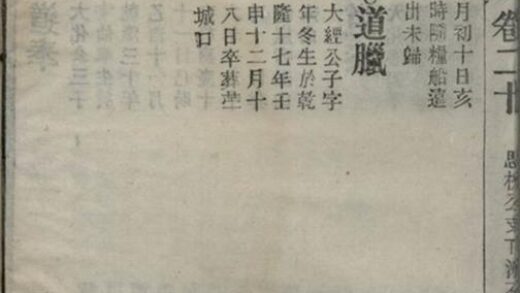 卷二十
思機公支下派
月初十日亥
時隨糧船遠
出未歸
道臘
大經公子字
年冬生於乾
隆十七年壬
申十二月十
八日卒葬莊
城口